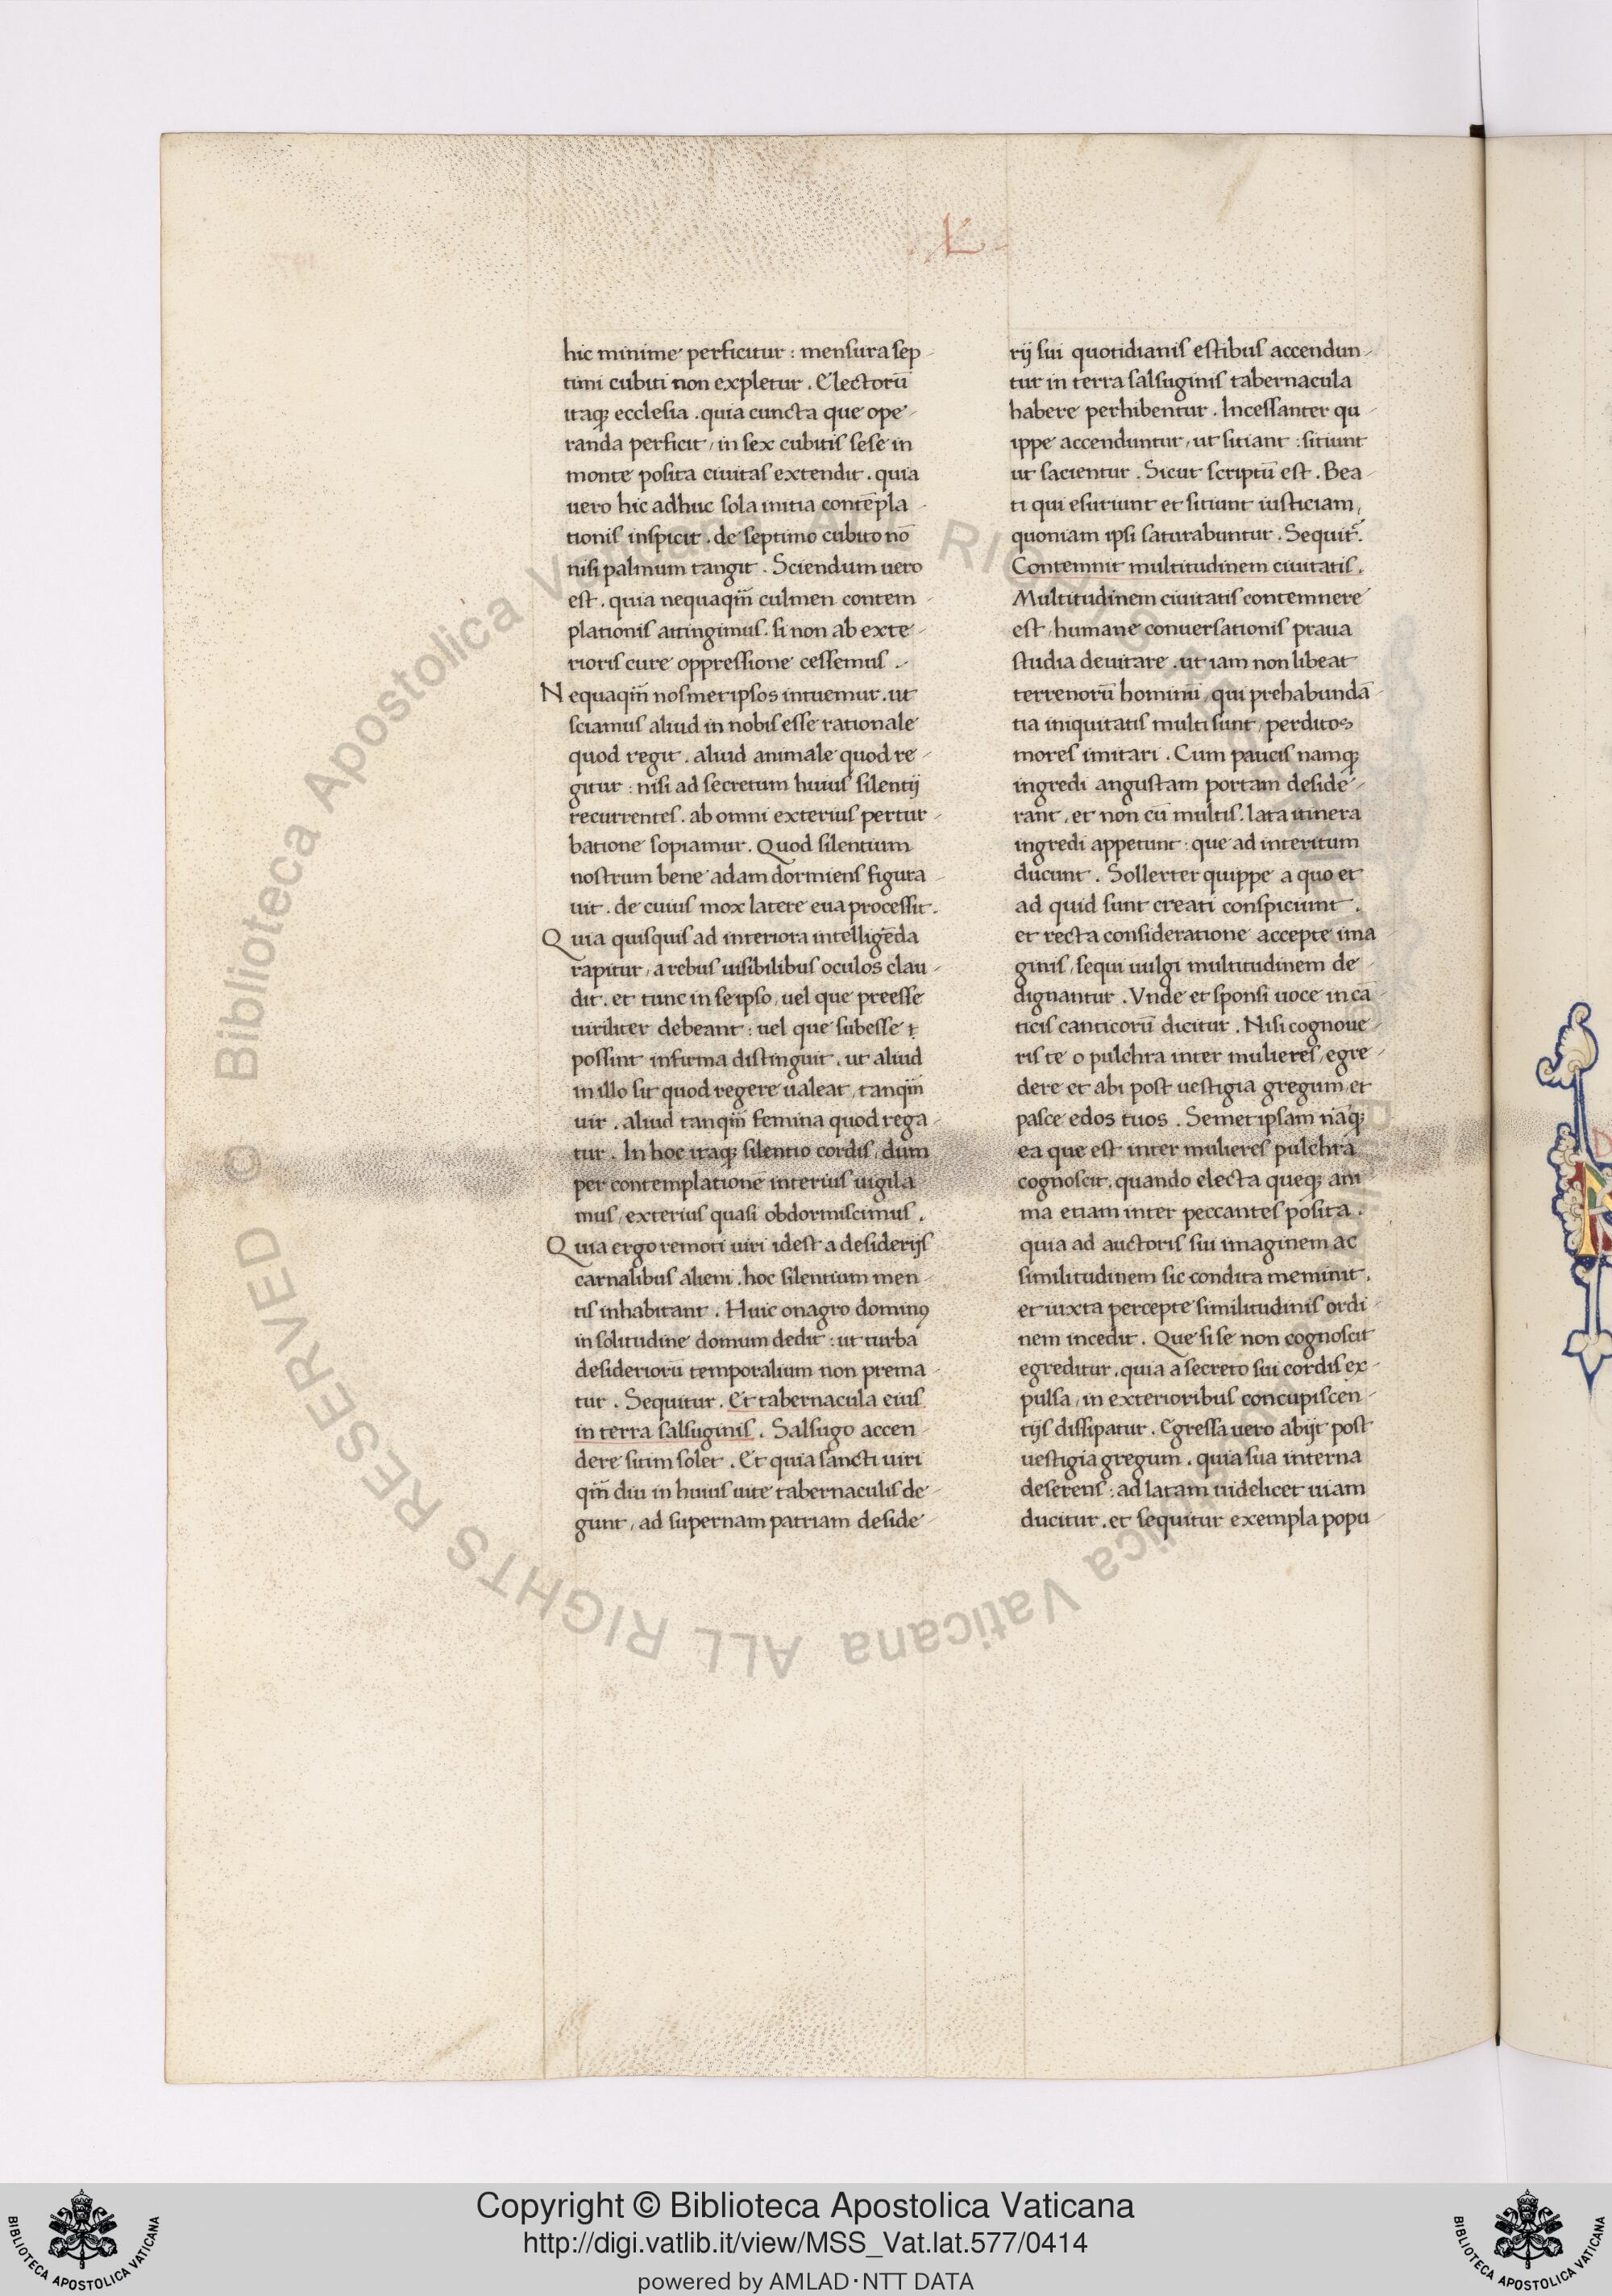 .L.
hic minime perficitur : mensura sep-
timi cubiti non expletur . Electorū
itaq; ecclesia . quia cuncta que ope-
randa perficit, in sex cubitis sese in
monte posita ciuitas extendit . quia
uero hic adhuc sola initia contēpla-
tionis inspicit . de septimo cubito nō
nisi palmum tangit . Sciendum uero
est . quia nequaqm̄ culmen contem-
plationis attingimus . si non ab exte-
rioris cure oppressione cessemus .
Nequaqm̄ nosmetipsos intuemur . ut
sciamus aliud in nobis esse rationale
quod regit . aliud animale quod re-
gitur : nisi ad secretum huius silentij
recurrentes . ab omni exterius pertur-
batione sopiamur . Quod silentium
nostrum bene adam dormiens figura-
uit . de cuius mox latere eua processit .
Quia quisquis ad interiora intelligēda
rapitur, a rebus uisibilibus oculos clau-
dit . et tunc in seipso, uel que preesse
uiriliter debeant : uel que subesse
possint infirma distinguit . ut aliud
in illo sit quod regere ualeat, tanqm̄
uir . aliud tanqm̄ femina quod rega-
tur . In hoc itaq; silentio cordis, dum
per contemplationē interius uigila-
mus, exterius quasi obdormiscimus .
Quia ergo remoti uiri idest a desiderijs
carnalibus alieni . hoc silentium men-
tis inhabitant . Huic onagro dominꝰ
in solitudine domum dedit : ut turba
desideriorū temporalium non prema-
tur . Sequitur . Et tabernacula eius
in terra salsuginis . Salsugo accen-
dere sitim solet . Et quia sancti uiri
qm̄ diu in huius uite tabernaculis de-
gunt, ad supernam patriam deside-
rij sui quotidianis estibus accendun-
tur in terra salsuginis tabernacula
habere perhibentur . Incessanter qu-
ippe accenduntur, ut sitiant : sitiunt
ut sacientur . Sicut scriptū est . Bea-
ti qui esuriunt et sitiunt iusticiam,
quoniam ipsi saturabuntur . Sequit̉ .
Contemnit multitudinem ciuitatis .
Multitudinem ciuitatis contemnere
est, humane conuersationis praua
studia deuitare . ut iam non libeat
terrenorū hominū, qui prehabundā-
tia iniquitatis multi sunt, perditos
mores imitari . Cum paucis namq;
ingredi angustam portam deside-
rant . et non cū multis . lata itinera
ingredi appetunt : que ad interitum
ducunt . Sollerter quippe a quo et
ad quid sunt creati conspiciunt .
et recta consideratione accepte ima
ginis, sequi uulgi multitudinem de-
dignantur . Vnde et sponsi uoce in cā-
ticis canticorū dicitur . Nisi cognoue-
ris te o pulchra inter mulieres, egre-
dere et abi post uestigia gregum, et
pasce edos tuos . Semet ipsam nāq;
ea que est inter mulieres pulchra
cognoscit, quando electa queq; ani-
ma etiam inter peccantes posita .
quia ad auctoris sui imaginem ac
similitudinem sic condita meminit .
et iuxta percepte similitudinis ordi-
nem incedit . Que si se non cognoscit
egreditur, quia a secreto sui cordis ex-
pulsa, in exterioribus concupiscen-
tijs dissipatur . Egressa uero abijt post
uestigia gregum . quia sua interna
deserens : ad latam uidelicet uiam
ducitur . et sequitur exempla popu-
Biblioteca Apostolica Vaticana ALL RIGHTS RESERVED ©
Copyright © Biblioteca Apostolica Vaticana
http://digi.vatlib.it/view/MSS_Vat.lat.577/0414
powered by AMLAD·NTT DATA
BIBLIOTECA APOSTOLICA VATICANA
BIBLIOTECA APOSTOLICA VATICANA